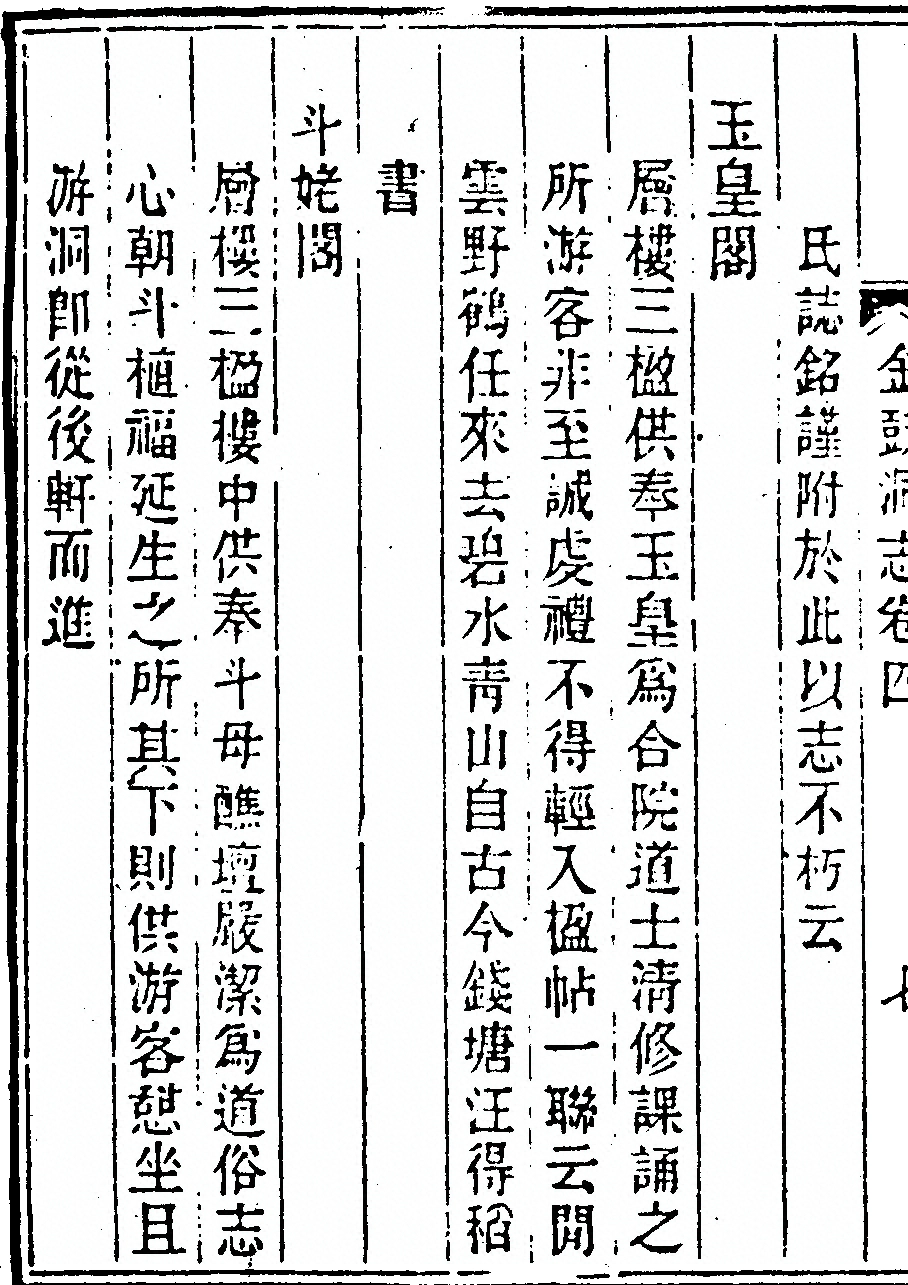 金鼓洞志卷四
氏誌銘謹附於此以志不朽云
玉皇閣
層樓三楹供奉玉皇爲合院道士淸修課誦之
所游客非至誠虔禮不得輕入楹帖一聯云閒
雲野鶴任來去碧水靑山自古今錢塘汪得稻
書
斗姥閣
層樓三楹樓中供奉斗母醮壇嚴潔爲道俗志
心朝斗植福延生之所其下則供游客憩坐且
游洞郎從後軒而進